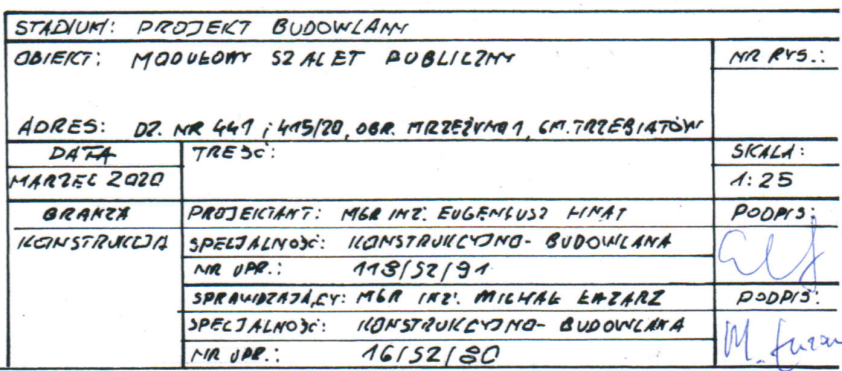 STADIUM: PROJEKT BUDOWLANY
OBIEKT: MODUŁOWY SZALET PUBLICZNY NR RYS.:
ADRES: DZ. NR 441 i 415/20, OBR. MRZEŻYNO 1, GM. TRZEBIATÓW
DATA TREŚĆ: SKALA:
MARZEC 2020 1:25
BRANŻA PROJEKTANT: MGR INŻ. EUGENIUSZ PODPIS:
KONSTRUKCJA SPECJALNOŚĆ: KONSTRUKCYJNO-BUDOWLANA
NR UPR.: 118/SZ/91
SPRAWDZAJĄCY: MGR INŻ. MICHAŁ ŁAZARZ PODPIS:
SPECJALNOŚĆ: KONSTRUKCYJNO-BUDOWLANA
NR UPR.: 16/SZ/80